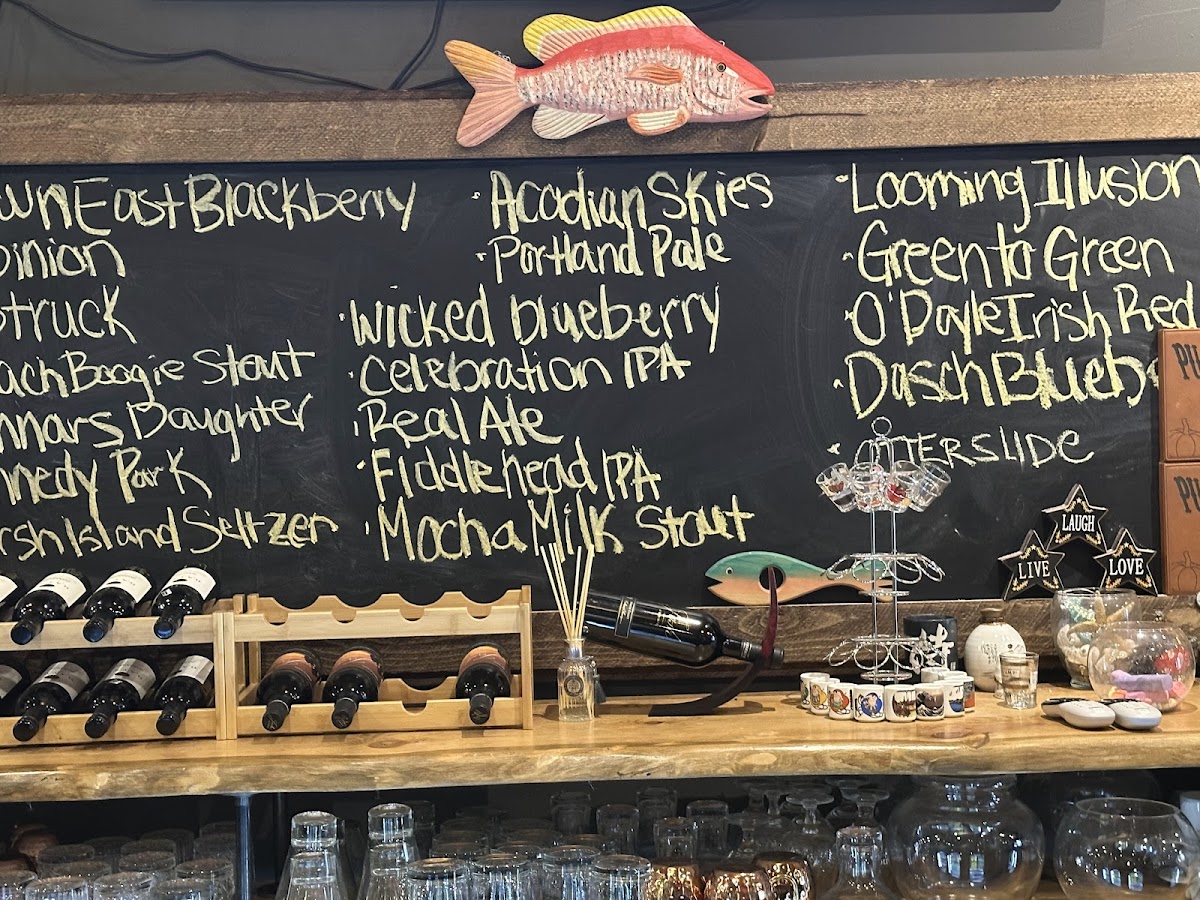 wnEast Blackberry
pinion
struck
ach Boogie Stout
nnars Daughter
nnedy Park
rsh Island Seltzer
Acadian Skies
Portland Pale
Wicked blueberry
Celebration IPA
Real Ale
Fiddlehead IPA
Mocha Milk Stout
Looming Illusion
Green to Green
O'Doyle Irish Red
Dasch Blueb
TTERSLIDE
PU
PU
LAUGH
LIVE
LOVE